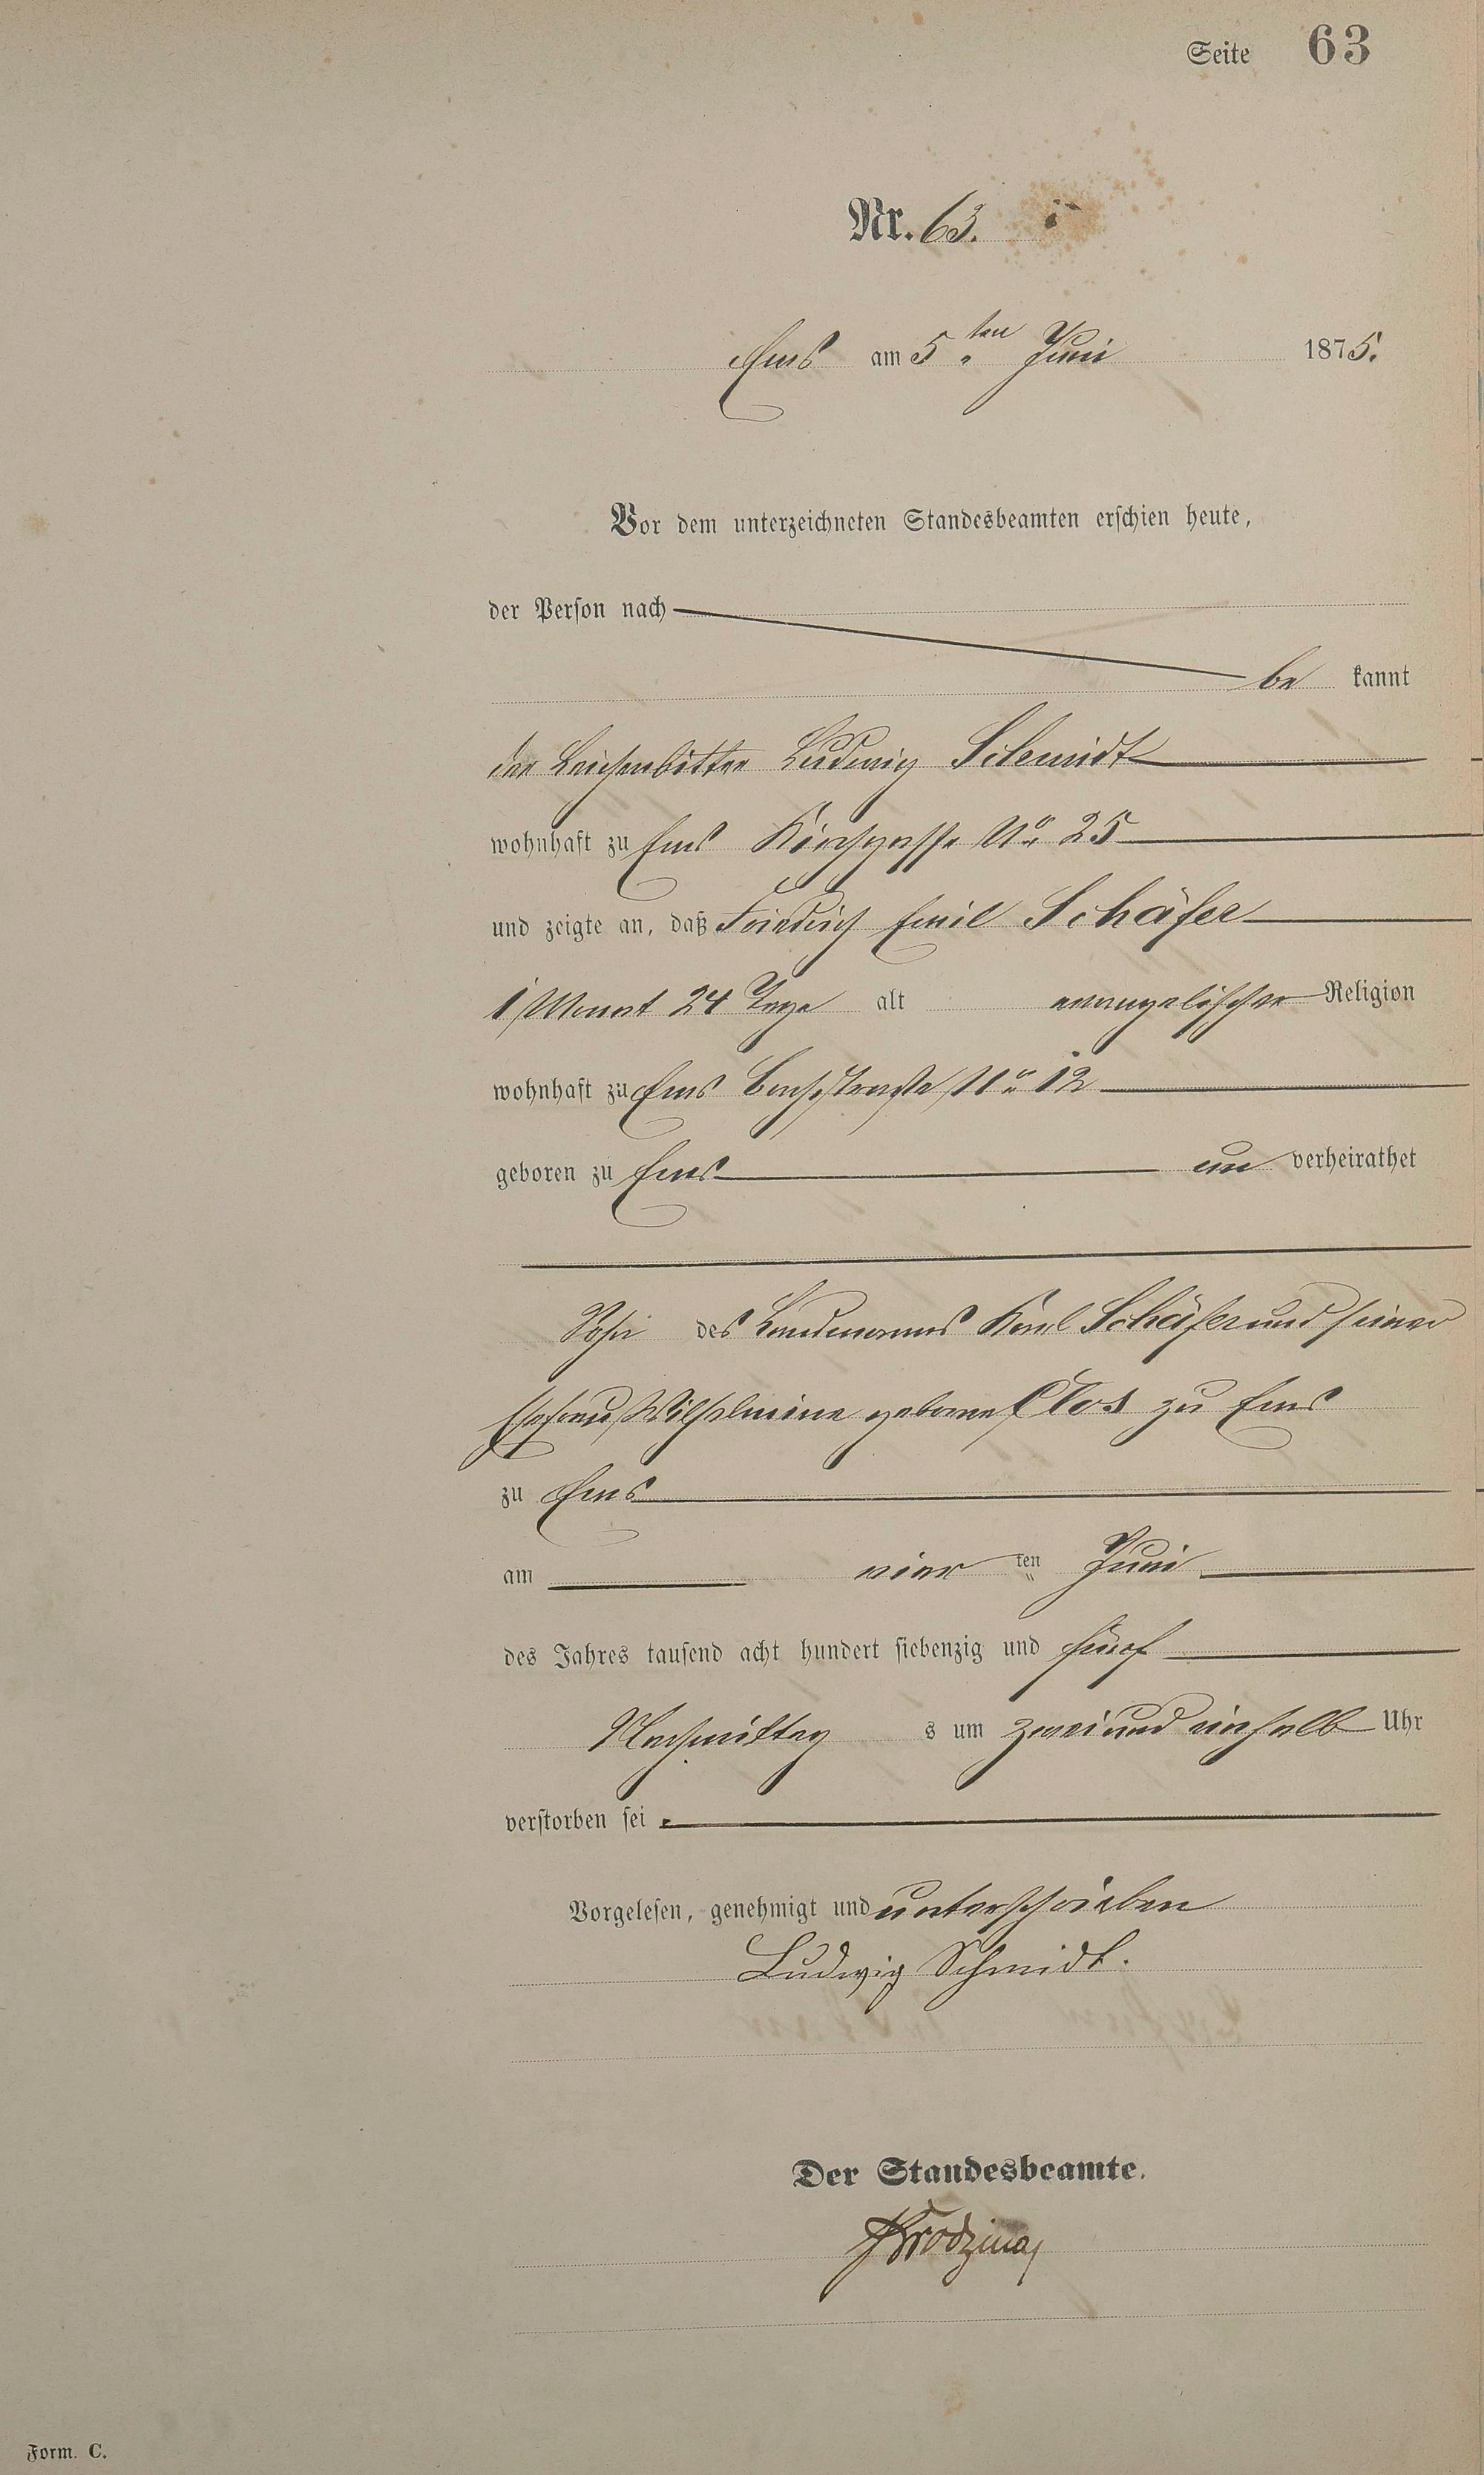 Seite 63
Nr. 63.
Ems am 5ten Juni 1875.
Vor dem unterzeichneten Standesbeamten erschien heute,
der Person nach
be kannt
der Leichenbitter Ludwig Schmidt
wohnhaft zu Ems Kirchgasse No 25
und zeigte an, daß Friedrich Emil Schäfer
1 Monat 24 Tage alt evangelischer Religion
wohnhaft zu Ems Bachstraße No 12
geboren zu Ems un verheirathet
Sohn des Landmanns Karl Schäfer und seiner
Ehefrau Wilhelmine geborne Clos zu Ems
zu Ems
am vier ten Juni
des Jahres tausend acht hundert siebenzig und fünf
Nachmittag s um zwei und einhalb Uhr
verstorben sei
Vorgelesen, genehmigt und unterschrieben
Ludwig Schmidt.
Der Standesbeamte.
Form. C.